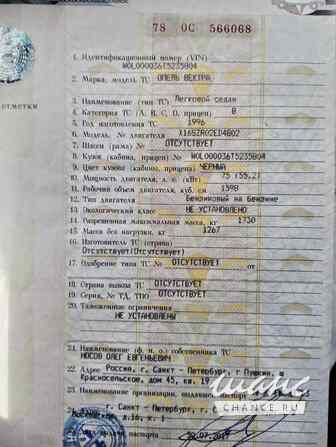 78 ОС 566068
1. Идентификационный номер (VIN) WOL000036T5235804
2. Марка, модель ТС ОПЕЛЬ ВЕКТРА
3. Наименование (тип ТС) Легковой седан
4. Категория ТС (А, В, С, D, прицеп) В
5. Год изготовления ТС 1996
6. Модель, № двигателя X16SZR02ED4802
7. Шасси (рама) № ОТСУТСТВУЕТ
8. Кузов (кабина, прицеп) № WOL000036T5235804
9. Цвет кузова (кабины, прицепа) ЧЕРНЫЙ
10. Мощность двигателя, л. с. (кВт) 75 (55,2)
11. Рабочий объем двигателя, куб. см 1598
12. Тип двигателя Бензиновый на бензине
13. Экологический класс НЕ УСТАНОВЛЕНО
14. Разрешенная максимальная масса, кг 1730
15. Масса без нагрузки, кг 1267
16. Изготовитель ТС (страна)
Отсутствует(Отсутствует)
17. Одобрение типа ТС № ОТСУТСТВУЕТ от
18. Страна вывоза ТС ОТСУТСТВУЕТ
19. Серия, № ТД, ТПО ОТСУТСТВУЕТ
20. Таможенные ограничения
НЕ УСТАНОВЛЕНЫ
21. Наименование (ф. и. о.) собственника ТС
НОСОВ ОЛЕГ ЕВГЕНЬЕВИЧ
22. Адрес Россия, г Санкт - Петербург, г Пушкин, ш
Красносельское, дом 45, кв. 19
23. Наименование организации, выдавшей паспорт
24. г. Санкт - Петербург, г
паспорта
отметки
ШАНС
CHANCE.RU